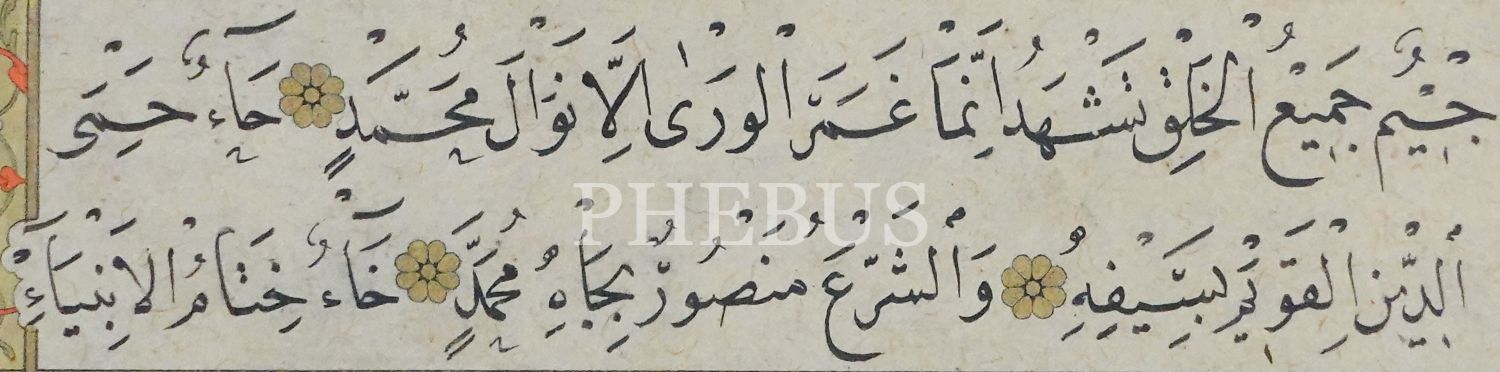 جِيْمٌ جَمِيْعُ الْخَلْقِ تَشْهَدُ اَنَّمَا غَمَرَ الْوَرٰى اِلَّا نَوَالَ مُحَمَّدٍ حَآءٌ حَمَى
الدِّيْنَ الْقَوِيْمَ بِسَيْفِهِ وَالشَّرْعَ مَنْصُورٌ بِجَاهِ مُحَمَّدٍ خَآءٌ خِتَامُ الْاَنْبِيَاءِ
PHEBUS